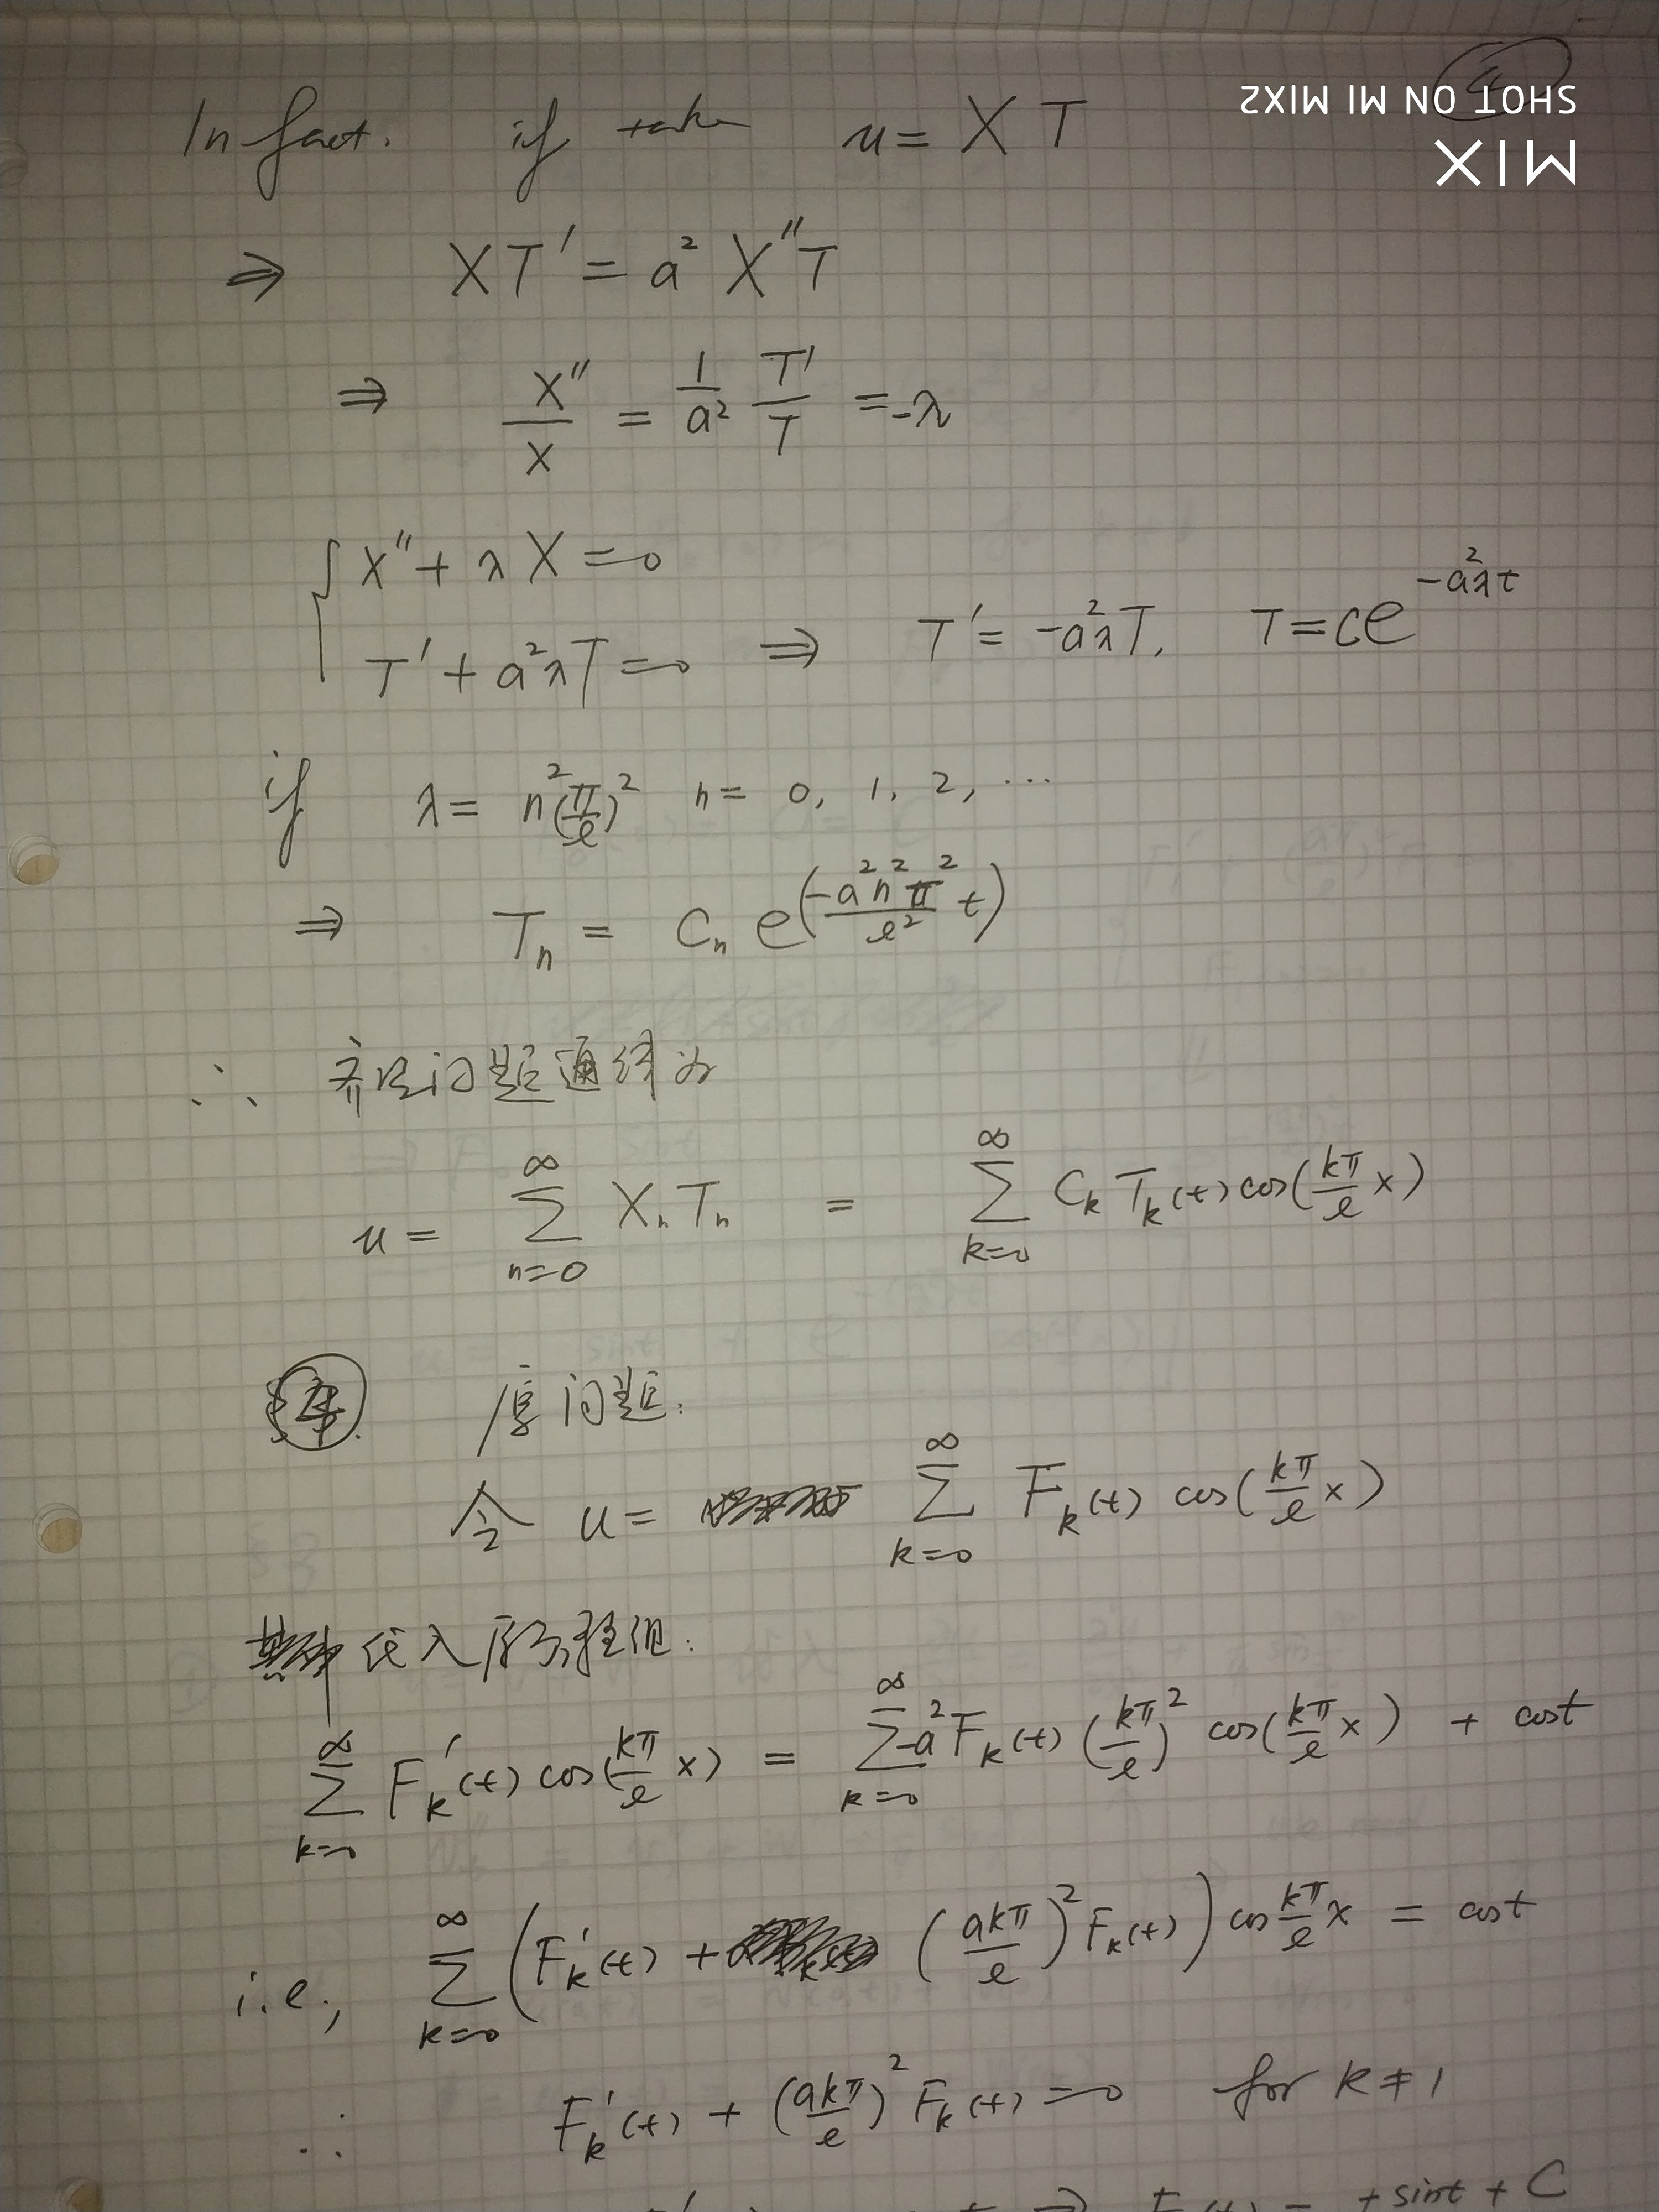 SHOT ON MI MIX2
MIX
④
In fact. if take u = X T
⇒ XT' = a² X''T
⇒ X''/X = 1/a² T'/T = -λ
{ X'' + λX = 0
T' + a²λT = 0 ⇒ T' = -a²λT, T = ce^(-a²λt)
if λ = n²(π/l)² n = 0, 1, 2, ⋯
⇒ Tₙ = Cₙ e^(-a²n²π²/l² t)
∴ 齐次问题通解为
u = ∑_{n=0}^{∞} XₙTₙ = ∑_{k=0}^{∞} C_k T_k(t) cos(kπ/l x)
④ 原问题:
令 u = ∑_{k=0}^{∞} F_k(t) cos(kπ/l x)
代入原方程组:
∑_{k=0}^{∞} F_k'(t) cos(kπ/l x) = ∑_{k=0}^{∞} -a² F_k(t) (kπ/l)² cos(kπ/l x) + cost
i.e., ∑_{k=0}^{∞} (F_k'(t) + (akπ/l)² F_k(t)) cos kπ/l x = cost
∴ F_k'(t) + (akπ/l)² F_k(t) = 0 for k ≠ 1
⇒ = + sint + C